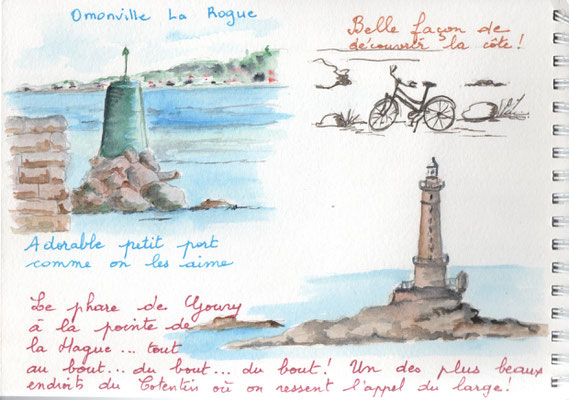 Omonville La Rogue
Belle façon de
découvrir la côte !
Adorable petit port
comme on les aime
Le phare de Goury
à la pointe de
la Hague ... tout
au bout... du bout... du bout ! Un des plus beaux
endroits du Cotentin où on ressent l'appel du large !